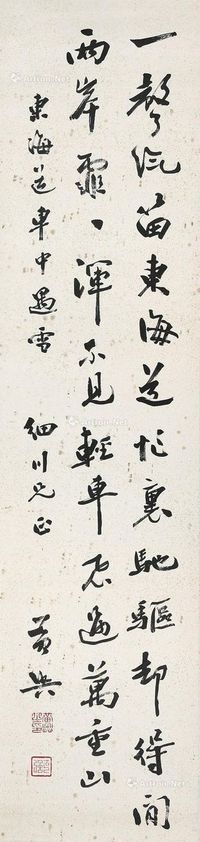 一聲汽笛東海道忙裏馳驅却得閒
兩岸霏〻渾不見輕車忽過萬重山
東海道車中遇雪 細川兄正
黃興